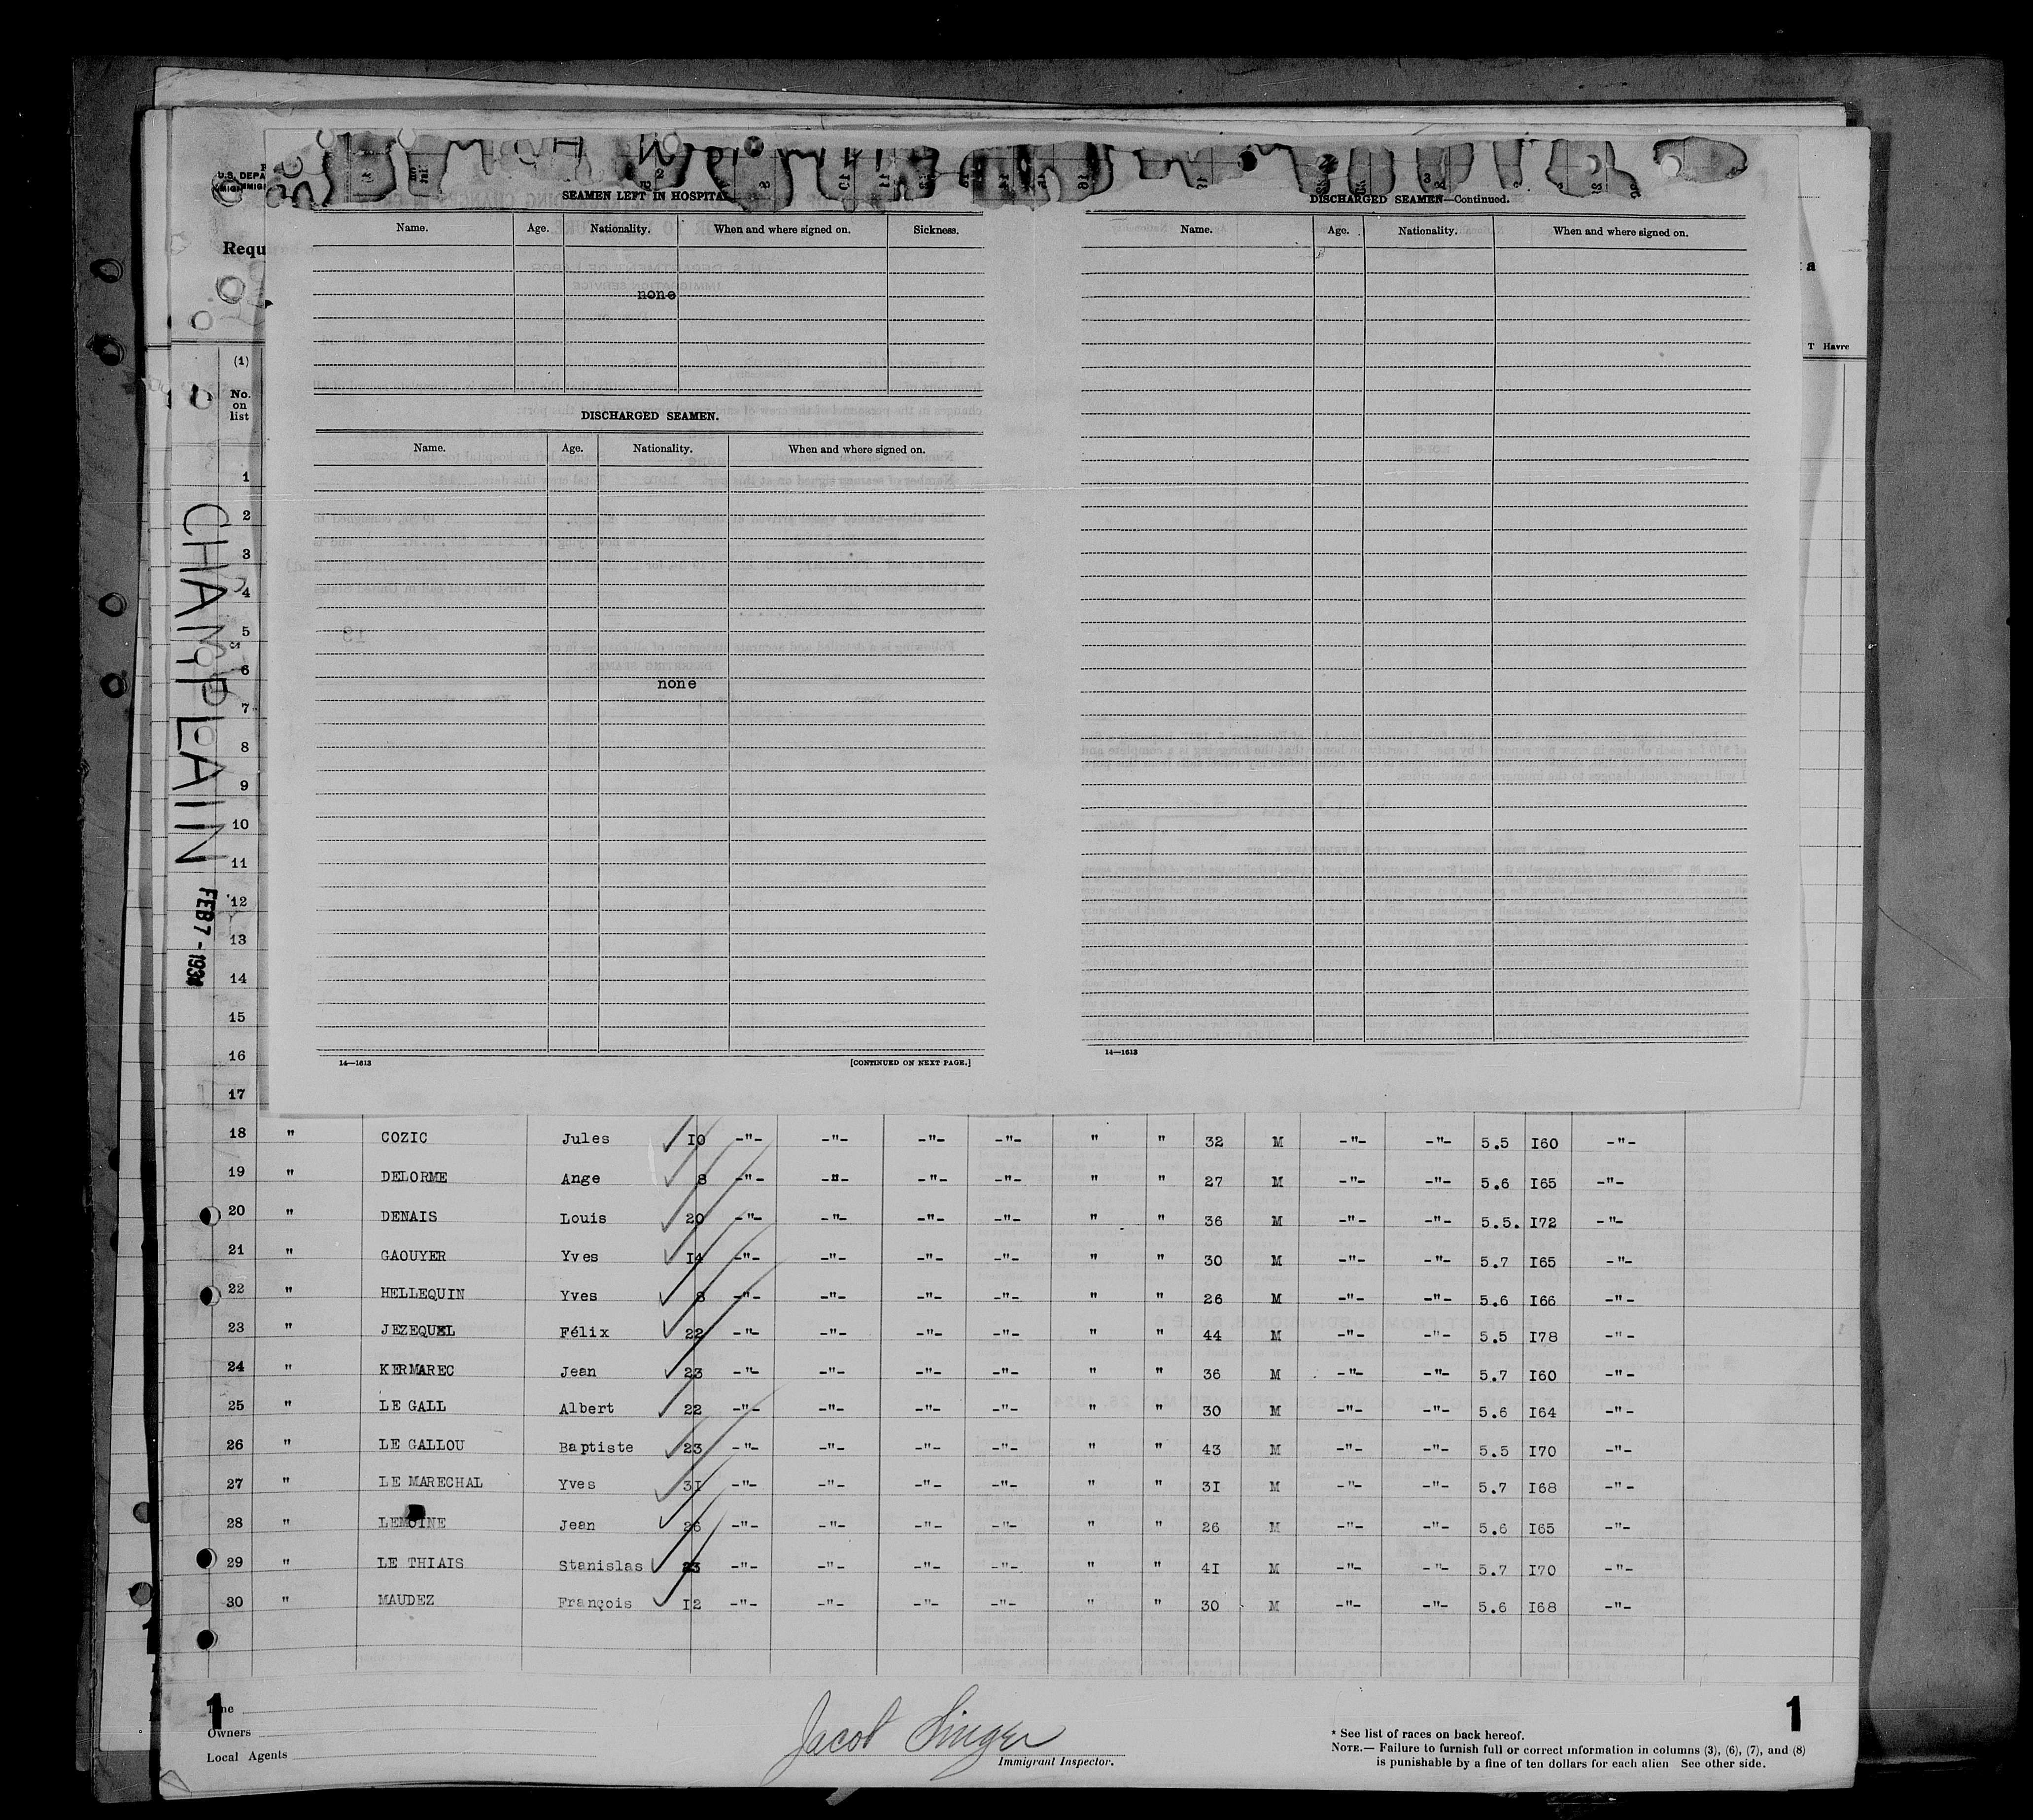 U.S. DEPA
Requ
SEAMEN LEFT IN HOSPITAL
Name. Age. Nationality. When and where signed on. Sickness.
none
DISCHARGED SEAMEN.
Name. Age. Nationality. When and where signed on.
none
14—1613 [CONTINUED ON NEXT PAGE.]
DISCHARGED SEAMEN—Continued.
Name. Age. Nationality. When and where signed on.
14—1613
a
T Havre
(1)
No.
on
list
CHAMPLAIN
FEB 7 - 193
1
2
3
4
5
6
7
8
9
10
11
12
13
14
15
16
17
18 " COZIC Jules 10 -"- -"- -"- -"- " " 32 M -"- -"- 5.5 I60 -"-
19 " DELORME Ange 8 -"- -"- -"- -"- " " 27 M -"- -"- 5.6 I65 -"-
20 " DENAIS Louis 20 -"- -"- -"- -"- " " 36 M -"- -"- 5.5. I72 -"-
21 " GAOUYER Yves I4 -"- -"- -"- -"- " " 30 M -"- -"- 5.7 I65 -"-
22 " HELLEQUIN Yves 8 -"- -"- -"- -"- " " 26 M -"- -"- 5.6 I66 -"-
23 " JEZEQUEL Félix 22 -"- -"- -"- -"- " " 44 M -"- -"- 5.5 I78 -"-
24 " KERMAREC Jean 23 -"- -"- -"- -"- " " 36 M -"- -"- 5.7 I60 -"-
25 " LE GALL Albert 22 -"- -"- -"- -"- " " 30 M -"- -"- 5.6 I64 -"-
26 " LE GALLOU Baptiste 23 -"- -"- -"- -"- " " 43 M -"- -"- 5.5 I70 -"-
27 " LE MARECHAL Yves 3I -"- -"- -"- -"- " " 3I M -"- -"- 5.7 I68 -"-
28 " LEMOINE Jean 26 -"- -"- -"- -"- " " 26 M -"- -"- 5.6 I65 -"-
29 " LE THIAIS Stanislas 23 -"- -"- -"- -"- " " 4I M -"- -"- 5.7 I70 -"-
30 " MAUDEZ François I2 -"- -"- -"- -"- " " 30 M -"- -"- 5.6 I68 -"-
1
Line
Owners
Local Agents
Jacob Singer
Immigrant Inspector.
1
* See list of races on back hereof.
NOTE.— Failure to furnish full or correct information in columns (3), (6), (7), and (8)
is punishable by a fine of ten dollars for each alien See other side.